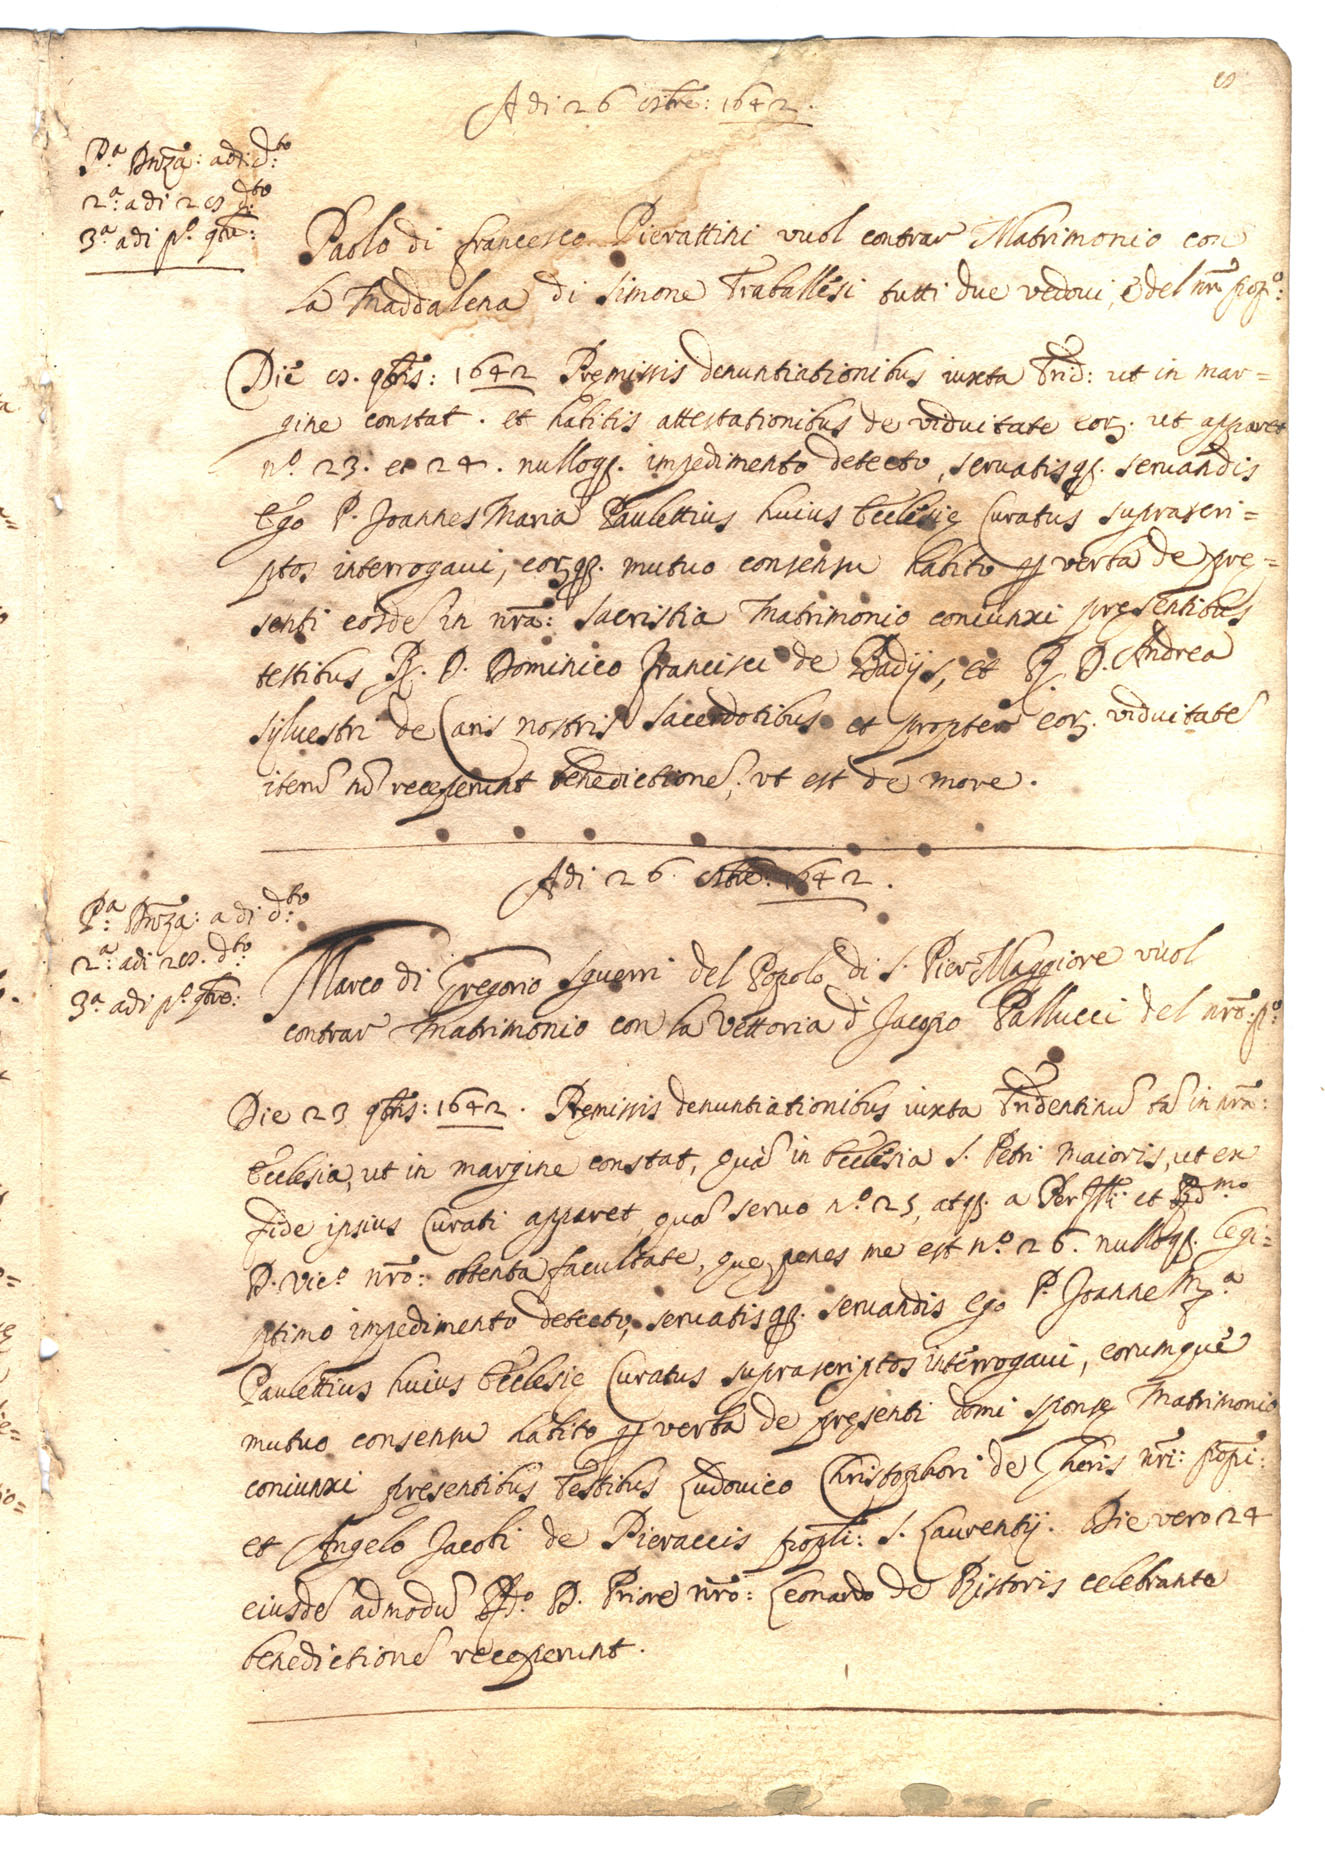 8
Adi 26 8bre: 1642.
P.a Dnza: adi d.to
2.a adi 28 d.to
3.a adi p.o 9bre:
Paolo di francesco Pierattini vuol contrar Matrimonio con
la Maddalena di Simone Traballesi tutti due vedovi, e del nro pop.o:
Die 8. 9bris: 1642 Pręmissis denuntiationibus iuxta Trid: ut in mar=
gine constat. et habitis attestationibus de viduitate eor. ut apparet
n.o 23. et 24. nulloq. impedimento detecto, servatisq. servandis
Ego P. Joannes Maria Paulettius huius Ecclesię Curatus suprascri=
ptos interrogavi, eorq. mutuo consensu habito p verba de prę=
senti eosdē in nra: sacristia Matrimonio coniunxi pręsentibus
testibus R. D. Dominico Francisci de Badijs, et R. D. Andrea
Sylvestri de Canis nostris Sacerdotibus et propter eor. viduitatē
iterū nō receperunt benedictionē, ut est de more.
Adi 26. 8bre: 1642.
P.a Dnza: adi d.to
2.a adi 28. d.to
3.a adi p.o 9bre:
Marco di Gregorio Sguerri del Popolo di S. Pier Maggiore vuol
contrar Matrimonio con la Vettoria d Jacopo Pallucci del nro: p.o
Die 23 9bris: 1642. Pręmissis denuntiationibus iuxta Tridentinū tā in nra:
Ecclesia, ut in margine constat, quā in Ecclesia S. Petri Maioris, ut ex
fide ipsius Curati apparet quā servo n.o 25, atq. a Per Ill: et Rd.mo
D. Vic.o nro: obtenta facultate, que penes me est n.o 26. nulloq. legi=
ptimo impedimento detecto, servatisq. servandis Ego P. Joannes M.a
Paulettius huius Ecclesię Curatus suprascriptos interrogavi, eorumque
mutuo consensu habito p verba de pręsenti domi sponsę Matrimonio
coniunxi pręsentibus Testibus Ludovico Christophori de Cheris nri: popli:
et Angelo Jacobi de Pieraccis popli: S. Laurentij. Die vero 24
eiusdē admodū Rd.o D. Priore nro: Leonardo de Ristoris celebrante
benedictionē receperunt.